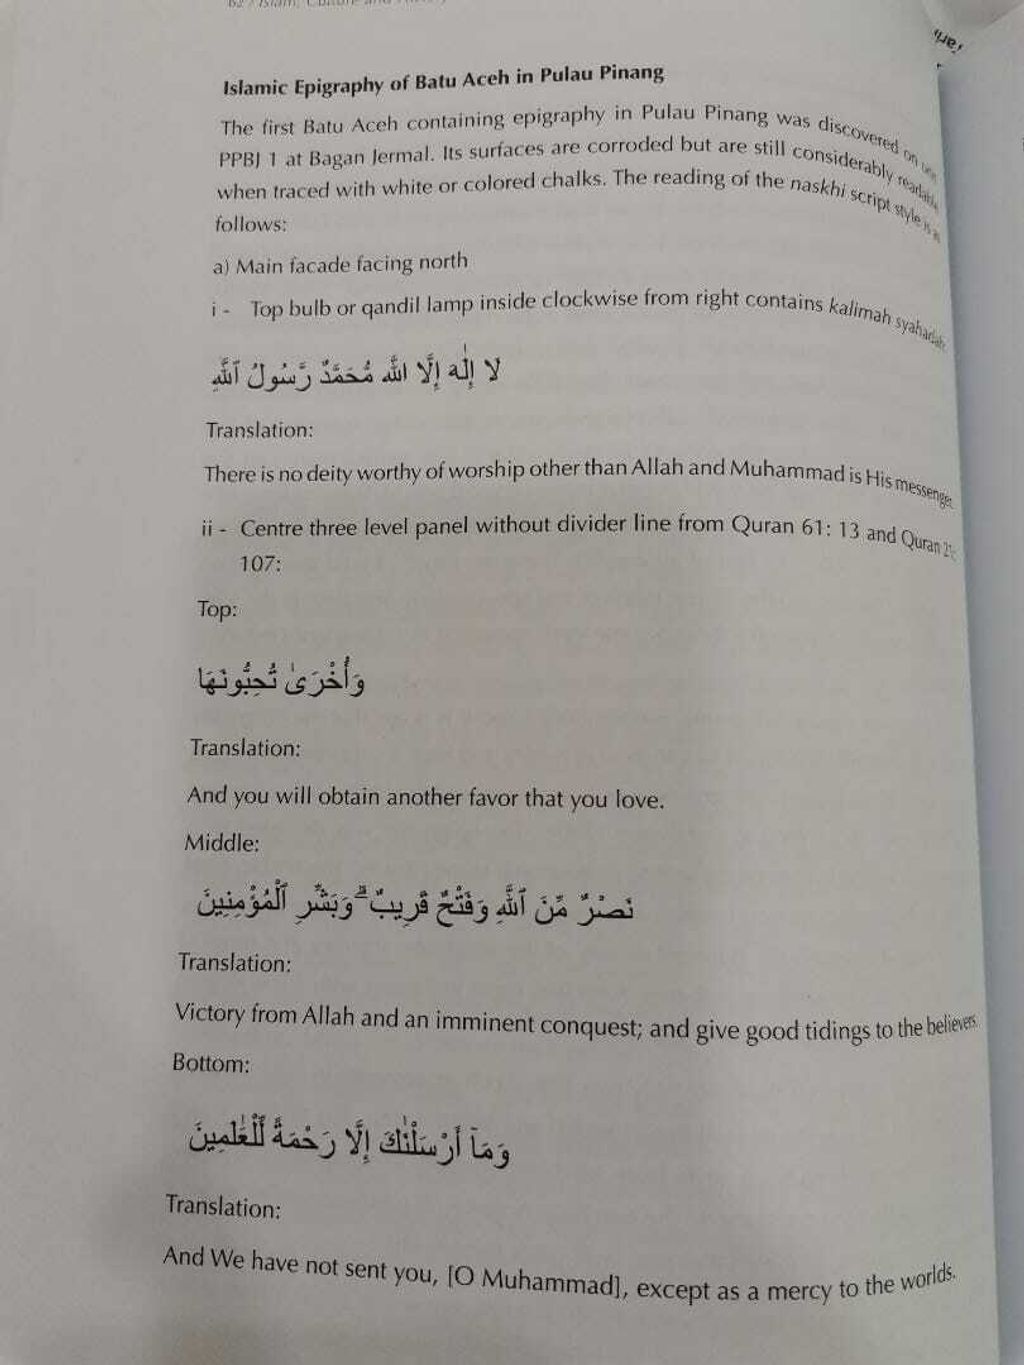 Islamic Epigraphy of Batu Aceh in Pulau Pinang
The first Batu Aceh containing epigraphy in Pulau Pinang was discovered on
PPBJ 1 at Bagan Jermal. Its surfaces are corroded but are still considerably readable
when traced with white or colored chalks. The reading of the naskhi script style is as
follows:
a) Main facade facing north
i - Top bulb or qandil lamp inside clockwise from right contains kalimah syahadah:
لا إِلٰه إِلَّا اللَّه مُحَمَّدٌ رَّسُولُ ٱللَّهِ
Translation:
There is no deity worthy of worship other than Allah and Muhammad is His messenger.
ii - Centre three level panel without divider line from Quran 61: 13 and Quran 21:
107:
Top:
وَأُخْرَىٰ تُحِبُّونَهَا
Translation:
And you will obtain another favor that you love.
Middle:
نَصْرٌ مِّنَ ٱللَّهِ وَفَتْحٌ قَرِيبٌ ۗ وَبَشِّرِ ٱلْمُؤْمِنِينَ
Translation:
Victory from Allah and an imminent conquest; and give good tidings to the believers.
Bottom:
وَمَآ أَرْسَلْنَٰكَ إِلَّا رَحْمَةً لِّلْعَٰلَمِينَ
Translation:
And We have not sent you, [O Muhammad], except as a mercy to the worlds.